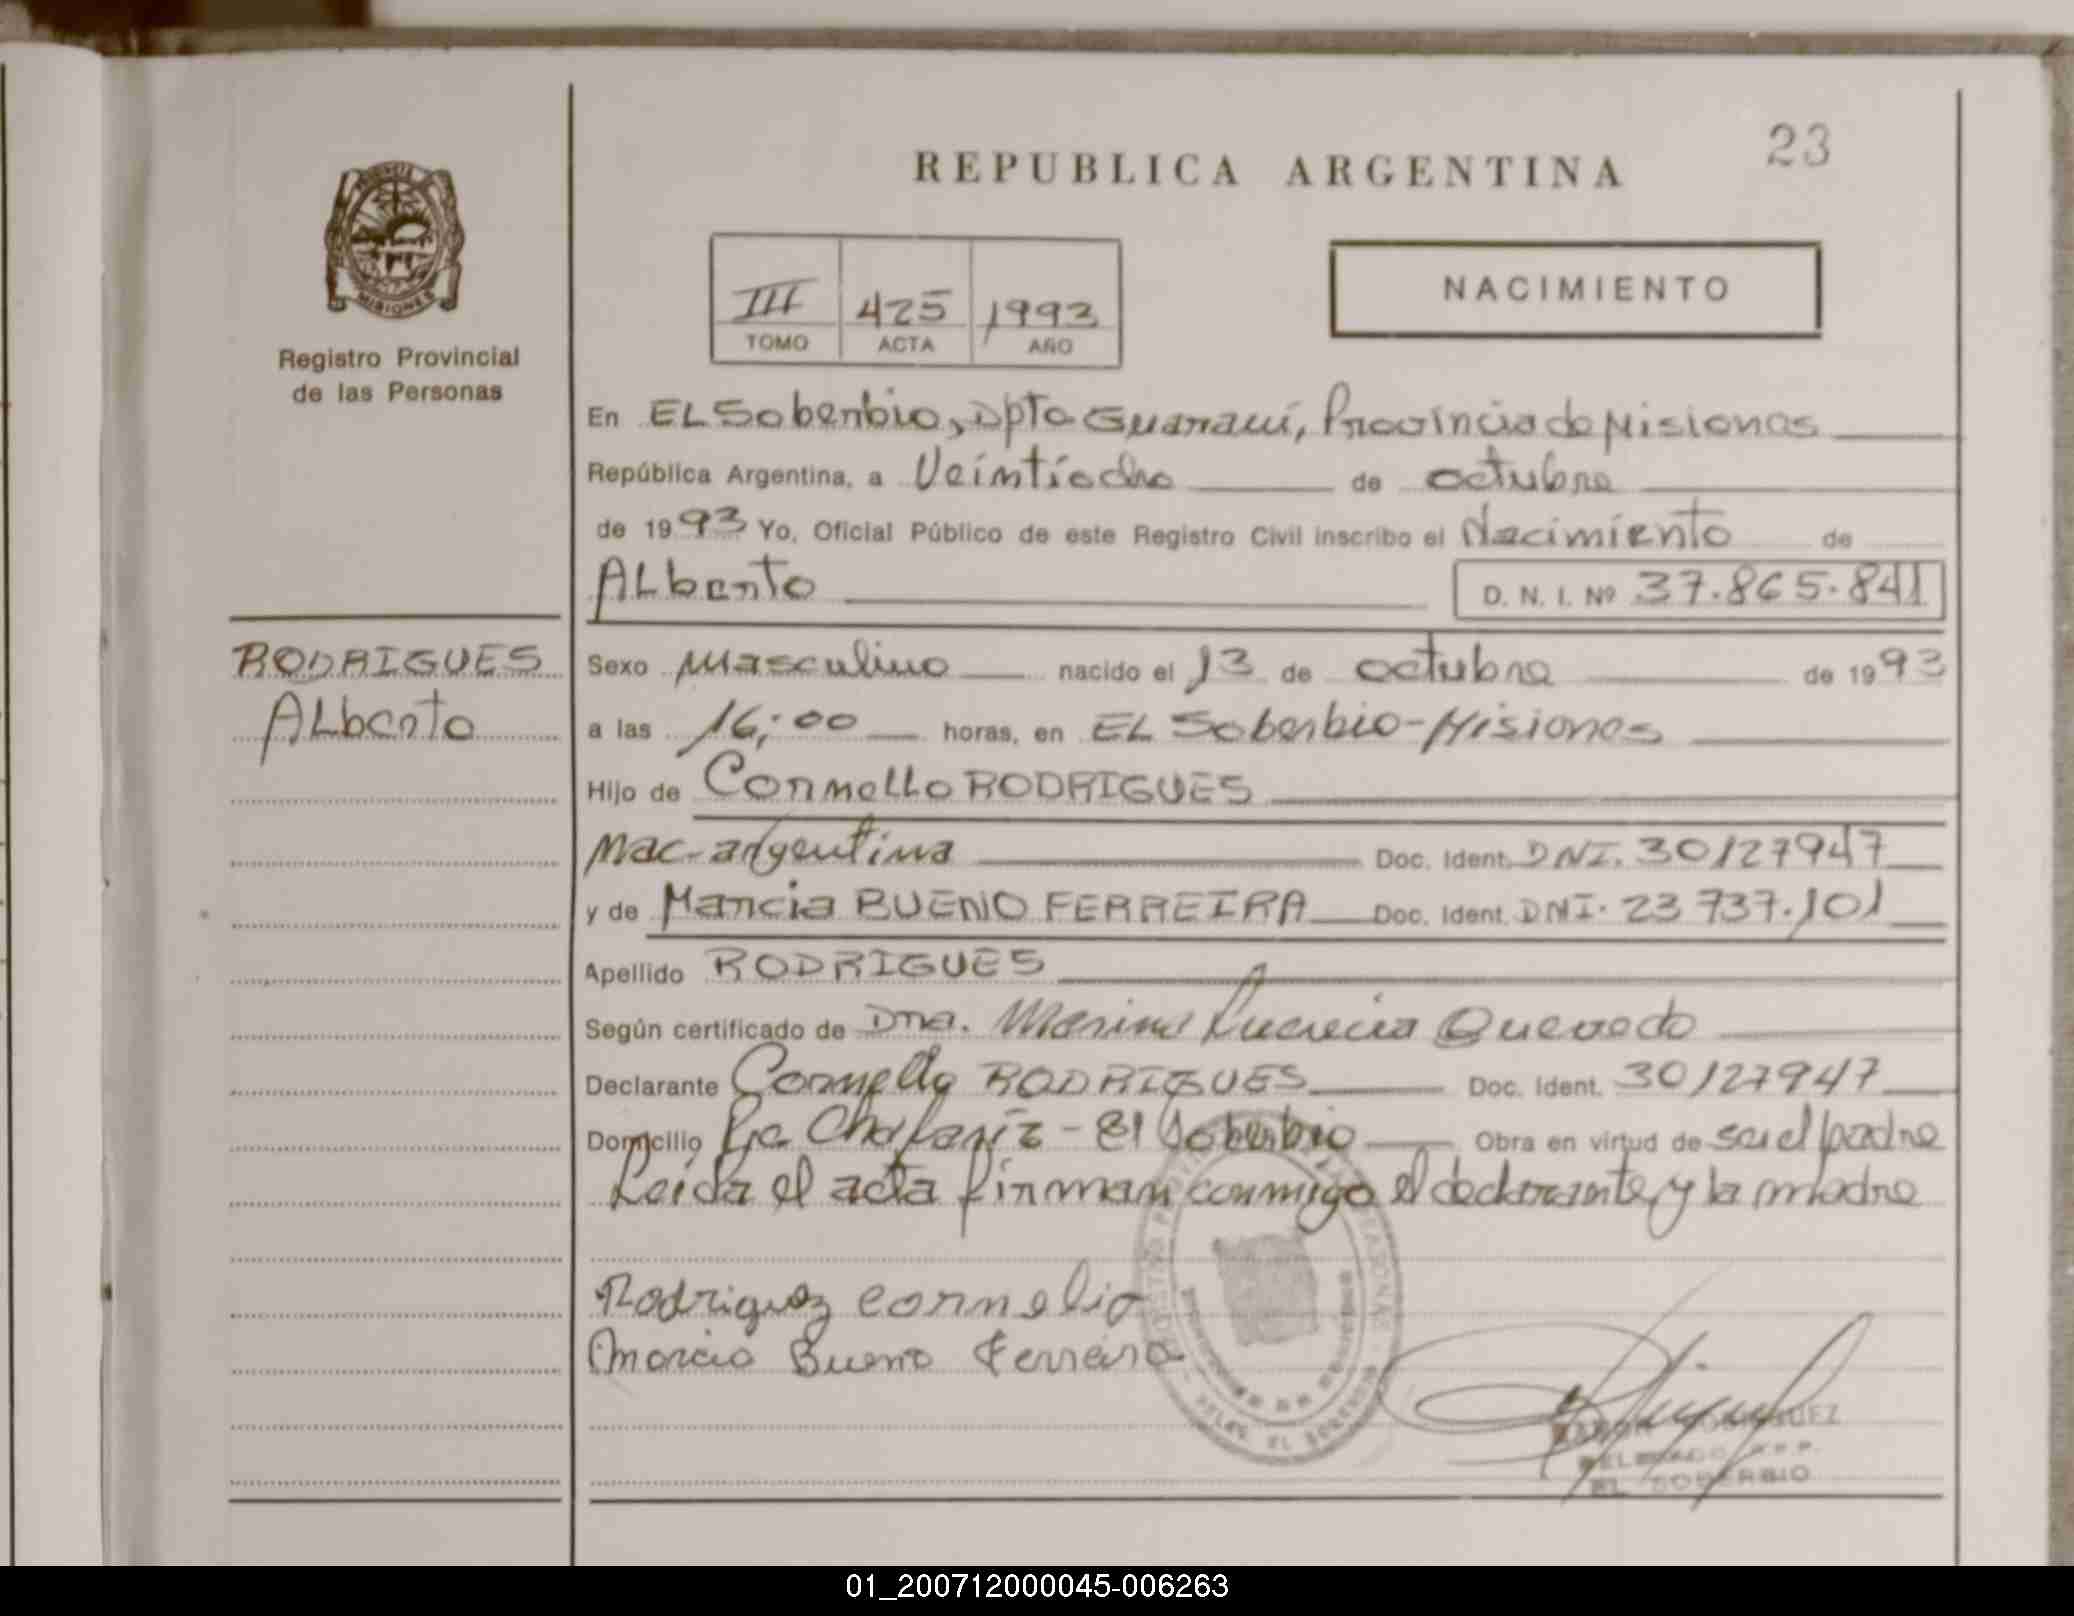 23
REPUBLICA ARGENTINA
MISIONES
NACIMIENTO
III 425 1993
TOMO ACTA AÑO
Registro Provincial
de las Personas
En EL Soberbio, Dpto Guaraní, Provincia de Misiones
República Argentina, a Veintiocho de octubre
de 1993 Yo, Oficial Público de este Registro Civil inscribo el Nacimiento de
Alberto D. N. I. Nº 37.865.841
RODRIGUES
Alberto
Sexo Masculino nacido el 13 de octubre de 1993
a las 16:00 horas, en EL Soberbio-Misiones
Hijo de Cornello RODRIGUES
Nac- argentina Doc. Ident. DNI. 30127947
y de Marcia BUENO FERREIRA Doc. Ident. DNI. 23 737.101
Apellido RODRIGUES
Según certificado de Dña. Marina Lucrecia Quevedo
Declarante Cornello RODRIGUES Doc. Ident. 30127947
Domicilio El Soberbio Obra en virtud de ser el padre
Leída el acta firman conmigo el declarante y la madre
Rodriguez cornelio
Marcia Bueno Ferreira
EL SOBERBIO
EL SOBERBIO
01_200712000045-006263